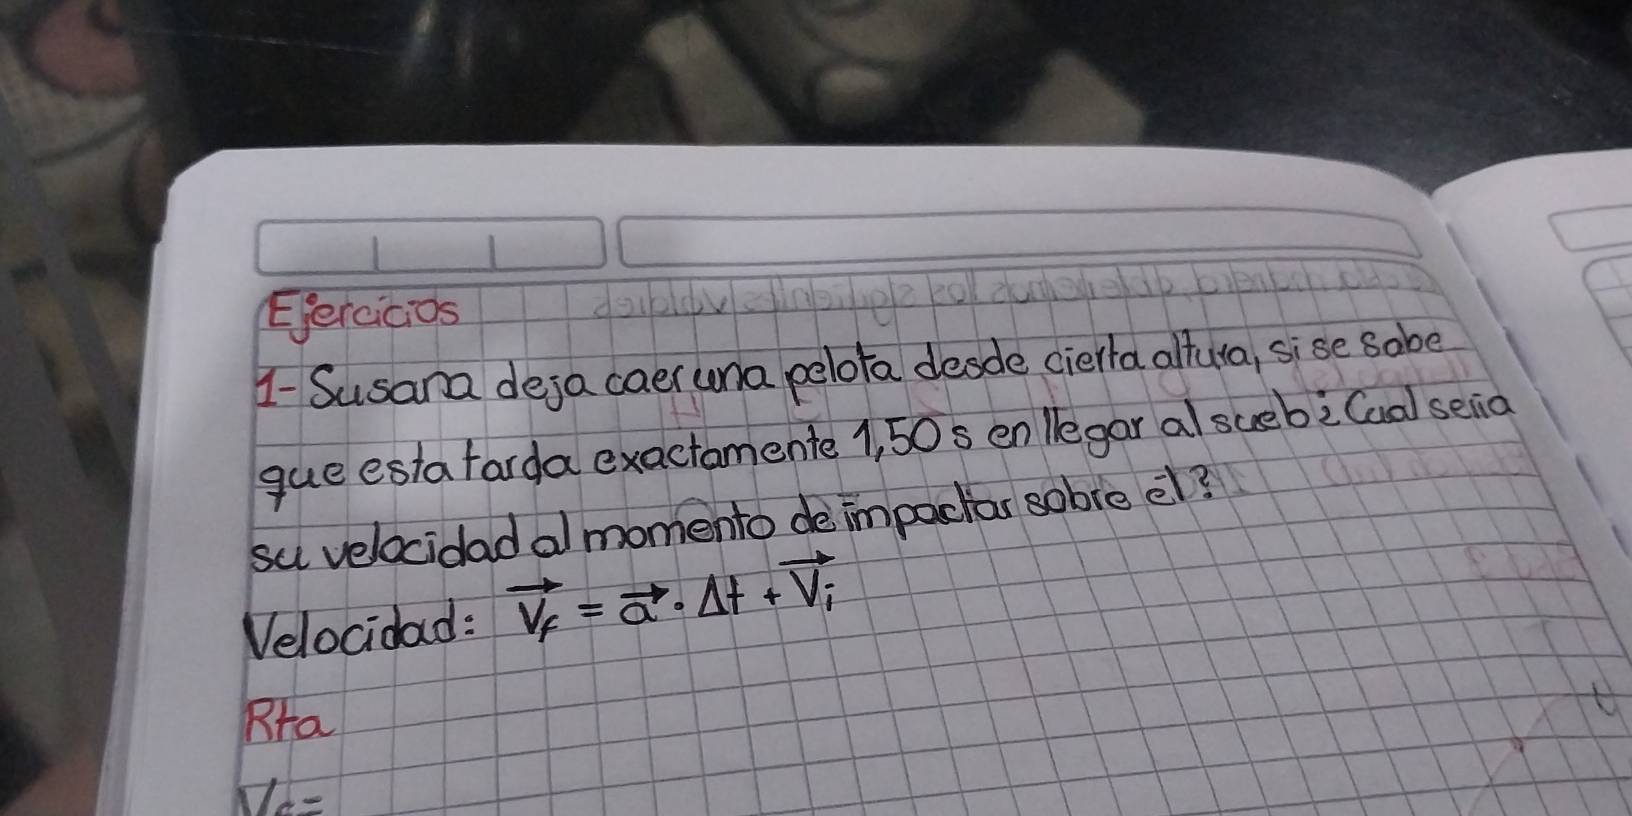 Ejercicios
1- Susana deja caer una pelota desde cierta altura, si se sabe
que esta tarda exactamente 1,50 s en llegar al sueb ¿Cual seria
su velocidad al momento de impactar sobre él?
Velocidad: Vf = a · Δt + Vi
Rta
Vf =